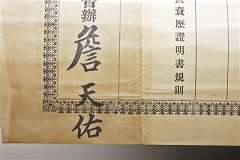 資歷證明書規則
會辦
詹天佑